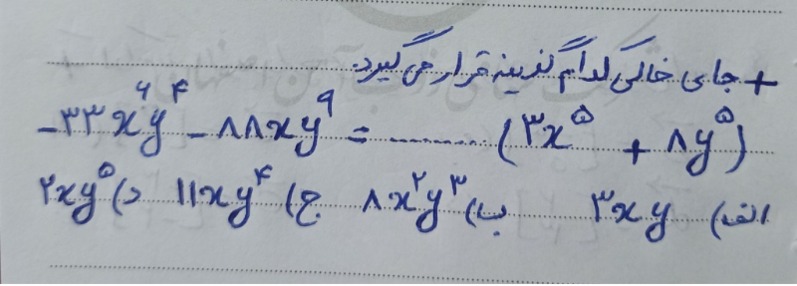 + جای خالی کدام گزینه قرار می گیرد.
-۳۳x⁶y⁴ - ۸۸xy⁹ = ........ (۳x⁵ + ۸y⁵)
الف) ۳xy ب) ۸x²y³ ج) ۱۱xy⁴ د) ۲xy⁵